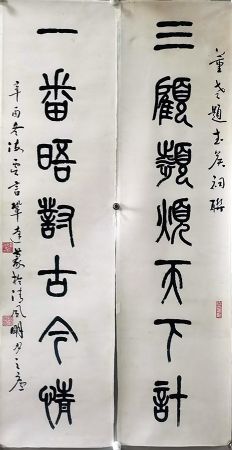 董老題武侯祠聯
三顧頻煩天下計
一番晤對古今情
辛酉冬凌雲達篆於清風明月之廬